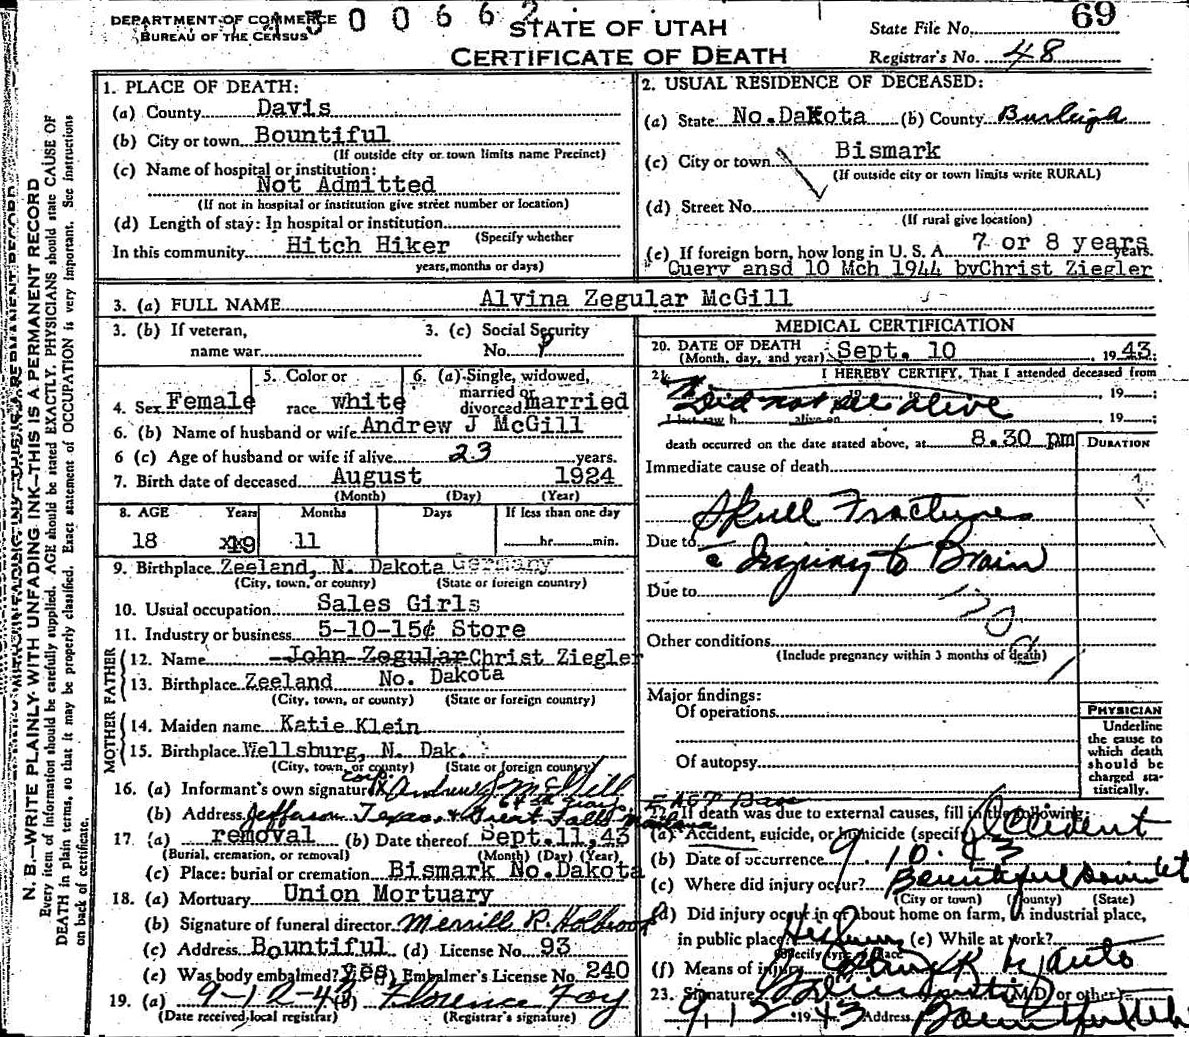 DEPARTMENT OF COMMERCE
BUREAU OF THE CENSUS
300662
STATE OF UTAH
CERTIFICATE OF DEATH
69
State File No.
Registrar's No. 48
N. B.—WRITE PLAINLY WITH UNFADING INK—THIS IS A PERMANENT RECORD
Every item of information should be carefully supplied. AGE should be stated EXACTLY. PHYSICIANS should state CAUSE OF
DEATH in plain terms, so that it may be properly classified. Exact statement of OCCUPATION is very important. See instructions
on back of certificate.
1. PLACE OF DEATH:
(a) County Davis
(b) City or town Bountiful
(If outside city or town limits name Precinct)
(c) Name of hospital or institution:
Not Admitted
(If not in hospital or institution give street number or location)
(d) Length of stay: In hospital or institution
(Specify whether
In this community Hitch Hiker
years, months or days)
2. USUAL RESIDENCE OF DECEASED:
(a) State No.Dakota (b) County Burleigh
(c) City or town Bismark
(If outside city or town limits write RURAL)
(d) Street No.
(If rural give location)
(e) If foreign born, how long in U. S. A. 7 or 8 years years.
Query ansd 10 Mch 1944 byChrist Ziegler
3. (a) FULL NAME Alvina Zegular McGill
3. (b) If veteran,
name war
3. (c) Social Security
No. ?
4. Sex Female
5. Color or
race white
6. (a) Single, widowed,
married or
divorced married
6. (b) Name of husband or wife Andrew J McGill
6 (c) Age of husband or wife if alive 23 years.
7. Birth date of deceased August 1924
(Month) (Day) (Year)
8. AGE Years Months Days If less than one day
18 xx19 11 hr. min.
9. Birthplace Zeeland, N. Dakota Germany
(City, town, or county) (State or foreign country)
10. Usual occupation Sales Girls
11. Industry or business 5-10-15¢ Store
FATHER
12. Name John Zegular Christ Ziegler
13. Birthplace Zeeland No. Dakota
(City, town, or county) (State or foreign country)
MOTHER
14. Maiden name Katie Klein
15. Birthplace Wellsburg, N. Dak.
(City, town, or county) (State or foreign country)
16. (a) Informant's own signature Corp. Andrew J McGill
(b) Address Jefferson Texas, & Great Falls Montana
East Base
17. (a) removal (b) Date thereof Sept.11,43
(Burial, cremation, or removal) (Month) (Day) (Year)
(c) Place: burial or cremation Bismark No.Dakota
18. (a) Mortuary Union Mortuary
(b) Signature of funeral director Merrill R. Holbrook
(c) Address Bountiful (d) License No. 93
(e) Was body embalmed? yes (f) Embalmer's License No. 240
19. (a) 9-12-43 (b) Florence Foy
(Date received local registrar) (Registrar's signature)
MEDICAL CERTIFICATION
20. DATE OF DEATH
(Month, day, and year) Sept. 10 1943:
21. I HEREBY CERTIFY, That I attended deceased from
, 19
Did not see alive
I last saw h alive on , 19
death occurred on the date stated above, at 8.30 pm
DURATION
Immediate cause of death
Skull Fractures
Due to
c Injury to Brain
Due to
170
Other conditions
(Include pregnancy within 3 months of death)
Major findings:
Of operations
Of autopsy
PHYSICIAN
Underline
the cause to
which death
should be
charged sta-
tistically.
22. If death was due to external causes, fill in the following:
(a) Accident, suicide, or homicide (specify) Accident
(b) Date of occurrence 9 10 43
(c) Where did injury occur? Bountiful Davis Ut
(City or town) (County) (State)
(d) Did injury occur in or about home on farm, in industrial place,
in public place? Highway (e) While at work?
(Specify type of place)
(f) Means of injury Struck by auto
23. Signature (M.D. or other)
9, 12 1943 Address Bountiful Utah